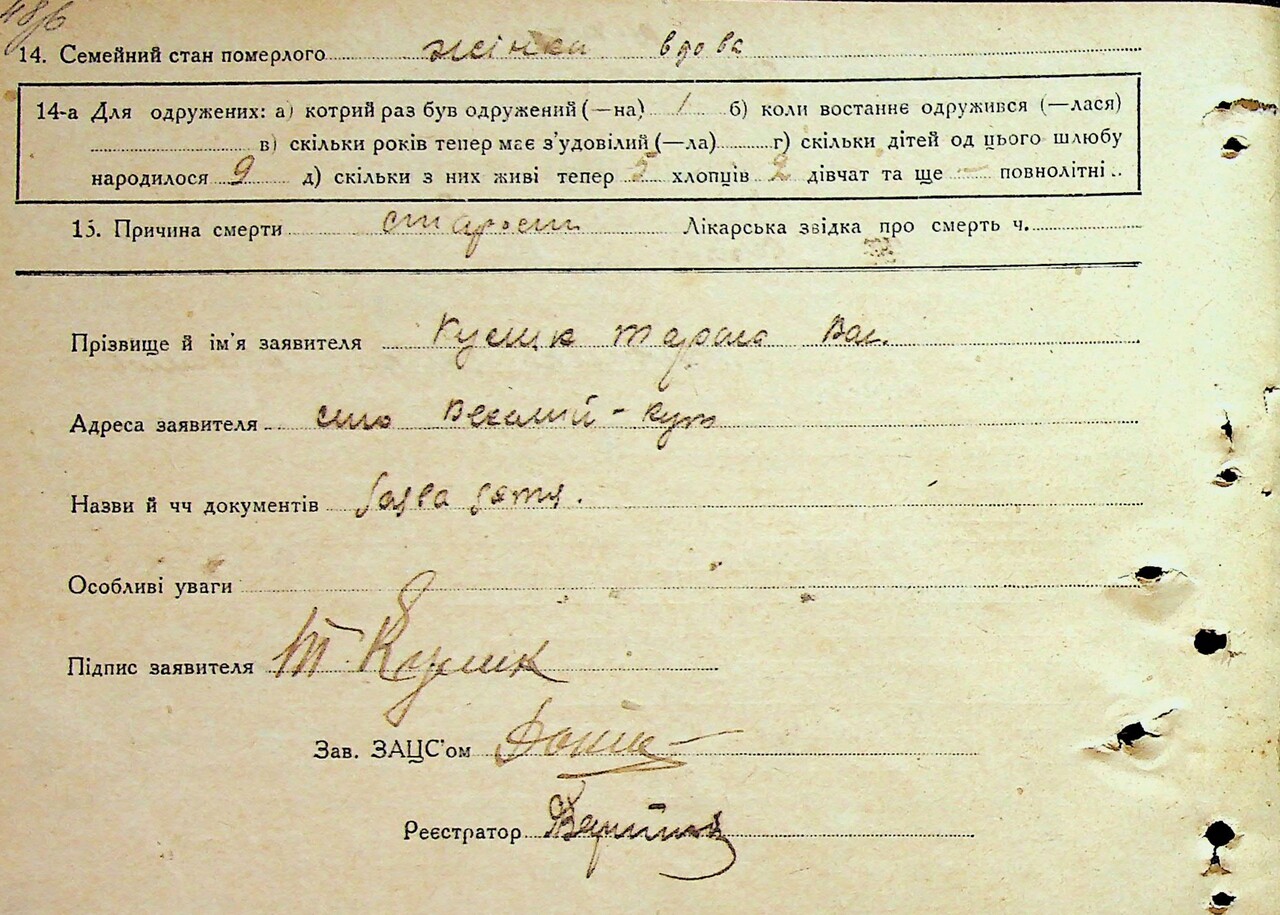 48б
14. Семейний стан померлого жінка вдова
14-а Для одружених: а) котрий раз був одружений (—на) 1 б) коли востаннє одружився (—лася)
в) скільки років тепер має з'удовілий (—ла) г) скільки дітей од цього шлюбу
народилося 9 д) скільки з них живі тепер 5 хлопців 2 дівчат та ще — повнолітні
15. Причина смерти старость Лікарська звідка про смерть ч.
Прізвище й ім'я заявителя Кулик Тараса Вас.
Адреса заявителя село Великий-Кут
Назви й чч документів
Особливі уваги
Підпис заявителя Т. Кулик
Зав. ЗАЦС'ом
Реєстратор